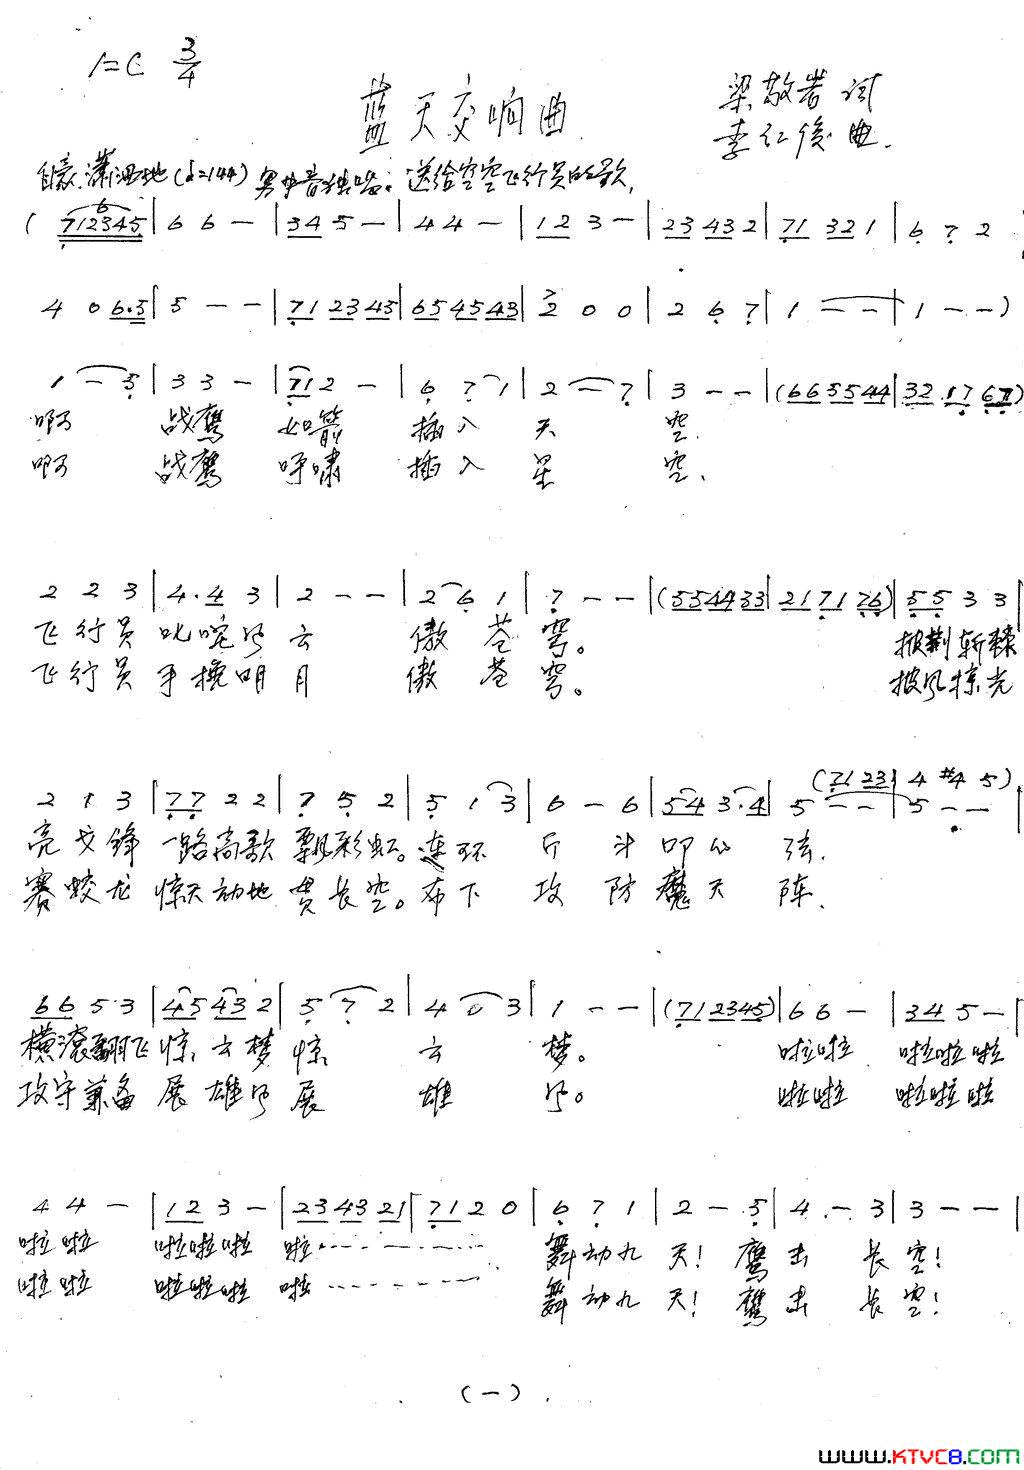 1=C 3/4
蓝天交响曲
梁敬岩 词
李仁俊 曲.
自豪 潇洒地(♩=144) 男中音独唱: 送给空空飞行员的歌.
( 712345 | 6 6 — | 34 5 — | 4 4 — | 12 3 — | 23 43 2 | 71 32 1 | 6 7 2
4 0 6.5 | 5 — — | 71 23 45 | 65 45 43 | 2 0 0 | 2 6 7 | 1 — — | 1 — — )
1 — 5 | 3 3 — | 71 2 — | 6 7 1 | 2 — 7 | 3 — — | (66 55 44 | 32 17 67)
啊 战鹰 如箭 插入 天 空.
啊 战鹰 呼啸 插入 星 空.
2 2 3 | 4. 4 3 | 2 — — | 2 6 1 | 7 — — | (55 44 33 | 21 71 76) | 55 3 3 |
飞行员 叱咤风云 傲苍穹。 披荆斩棘
飞行员 手挽明月 傲苍穹。 披风掠光
(71 23 | 4 #4 5)
2 1 3 | 77 2 2 | 7 5 2 | 5 1 3 | 6 — 6 | 54 3.4 | 5 — — | 5 — — |
亮戈锋 一路高歌 飘彩虹。连环 斤 斗 叩心 弦.
赛蛟龙 惊天动地 贯长空。布下 攻 防 魔天 阵.
66 5 3 | 45 43 2 | 5 7 2 | 4 0 3 | 1 — — | (71 23 45) | 6 6 — | 34 5 — |
横滚翻飞 惊云梦 惊 云 梦。 啦啦 啦啦啦
攻守兼备 展雄风 展 雄 风。 啦啦 啦啦啦
4 4 — | 12 3 — | 23 43 21 | 71 2 0 | 6 7 1 | 2 — 5 | 4 — 3 | 3 — — |
啦啦 啦啦啦 啦………… 舞动九 天! 鹰 击 长 空!
啦啦 啦啦啦 啦………… 舞动九 天! 鹰 击 长 空!
(一)
www.KTVC8.com